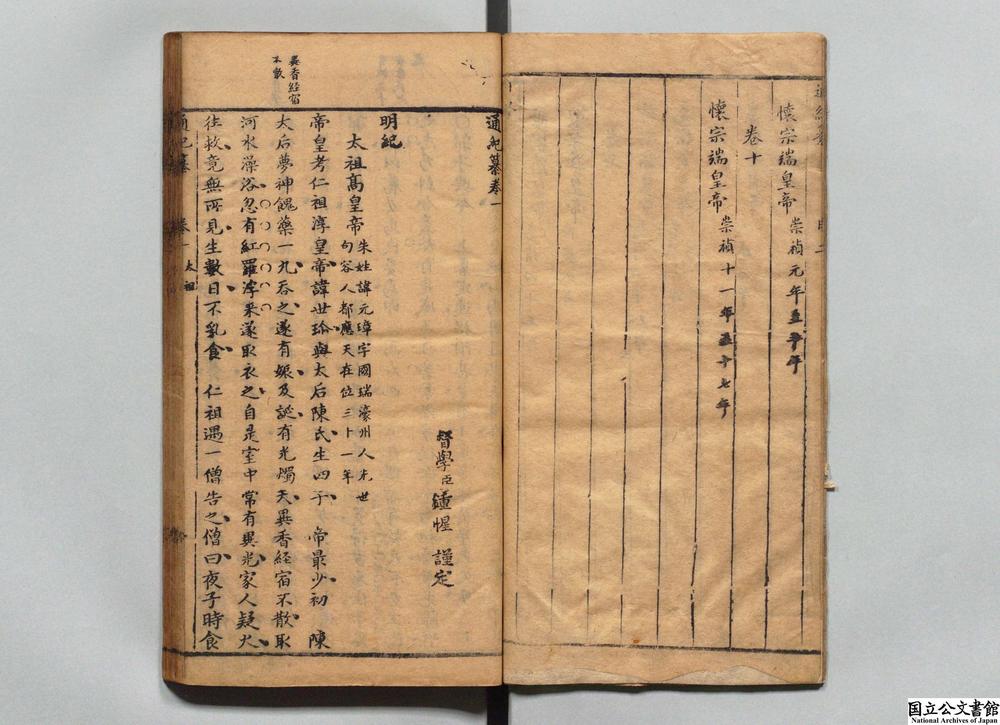 懷宗端皇帝 崇禎元年至十年
卷十
懷宗端皇帝 崇禎十一年至十七年
通紀纂卷一
督學臣鍾惺 謹定
明紀
太祖髙皇帝 朱姓諱元璋字國瑞濠州人先世
句容人都應天在位三十一年
帝皇考仁祖淳皇帝諱世珍與太后陳氏生四子 帝最少初 陳
太后夢神餽藥一丸吞之遂有娠及誕有光燭天異香経宿不散取
河水澡浴忽有紅羅浮来遂取衣之自是室中常有異光家人疑火
往救竟無所見生數日不乳食 仁祖遇一僧告之僧曰夜子時食
異香経宿
不散
通紀纂 卷一 太祖
国立公文書館
National Archives of Japan